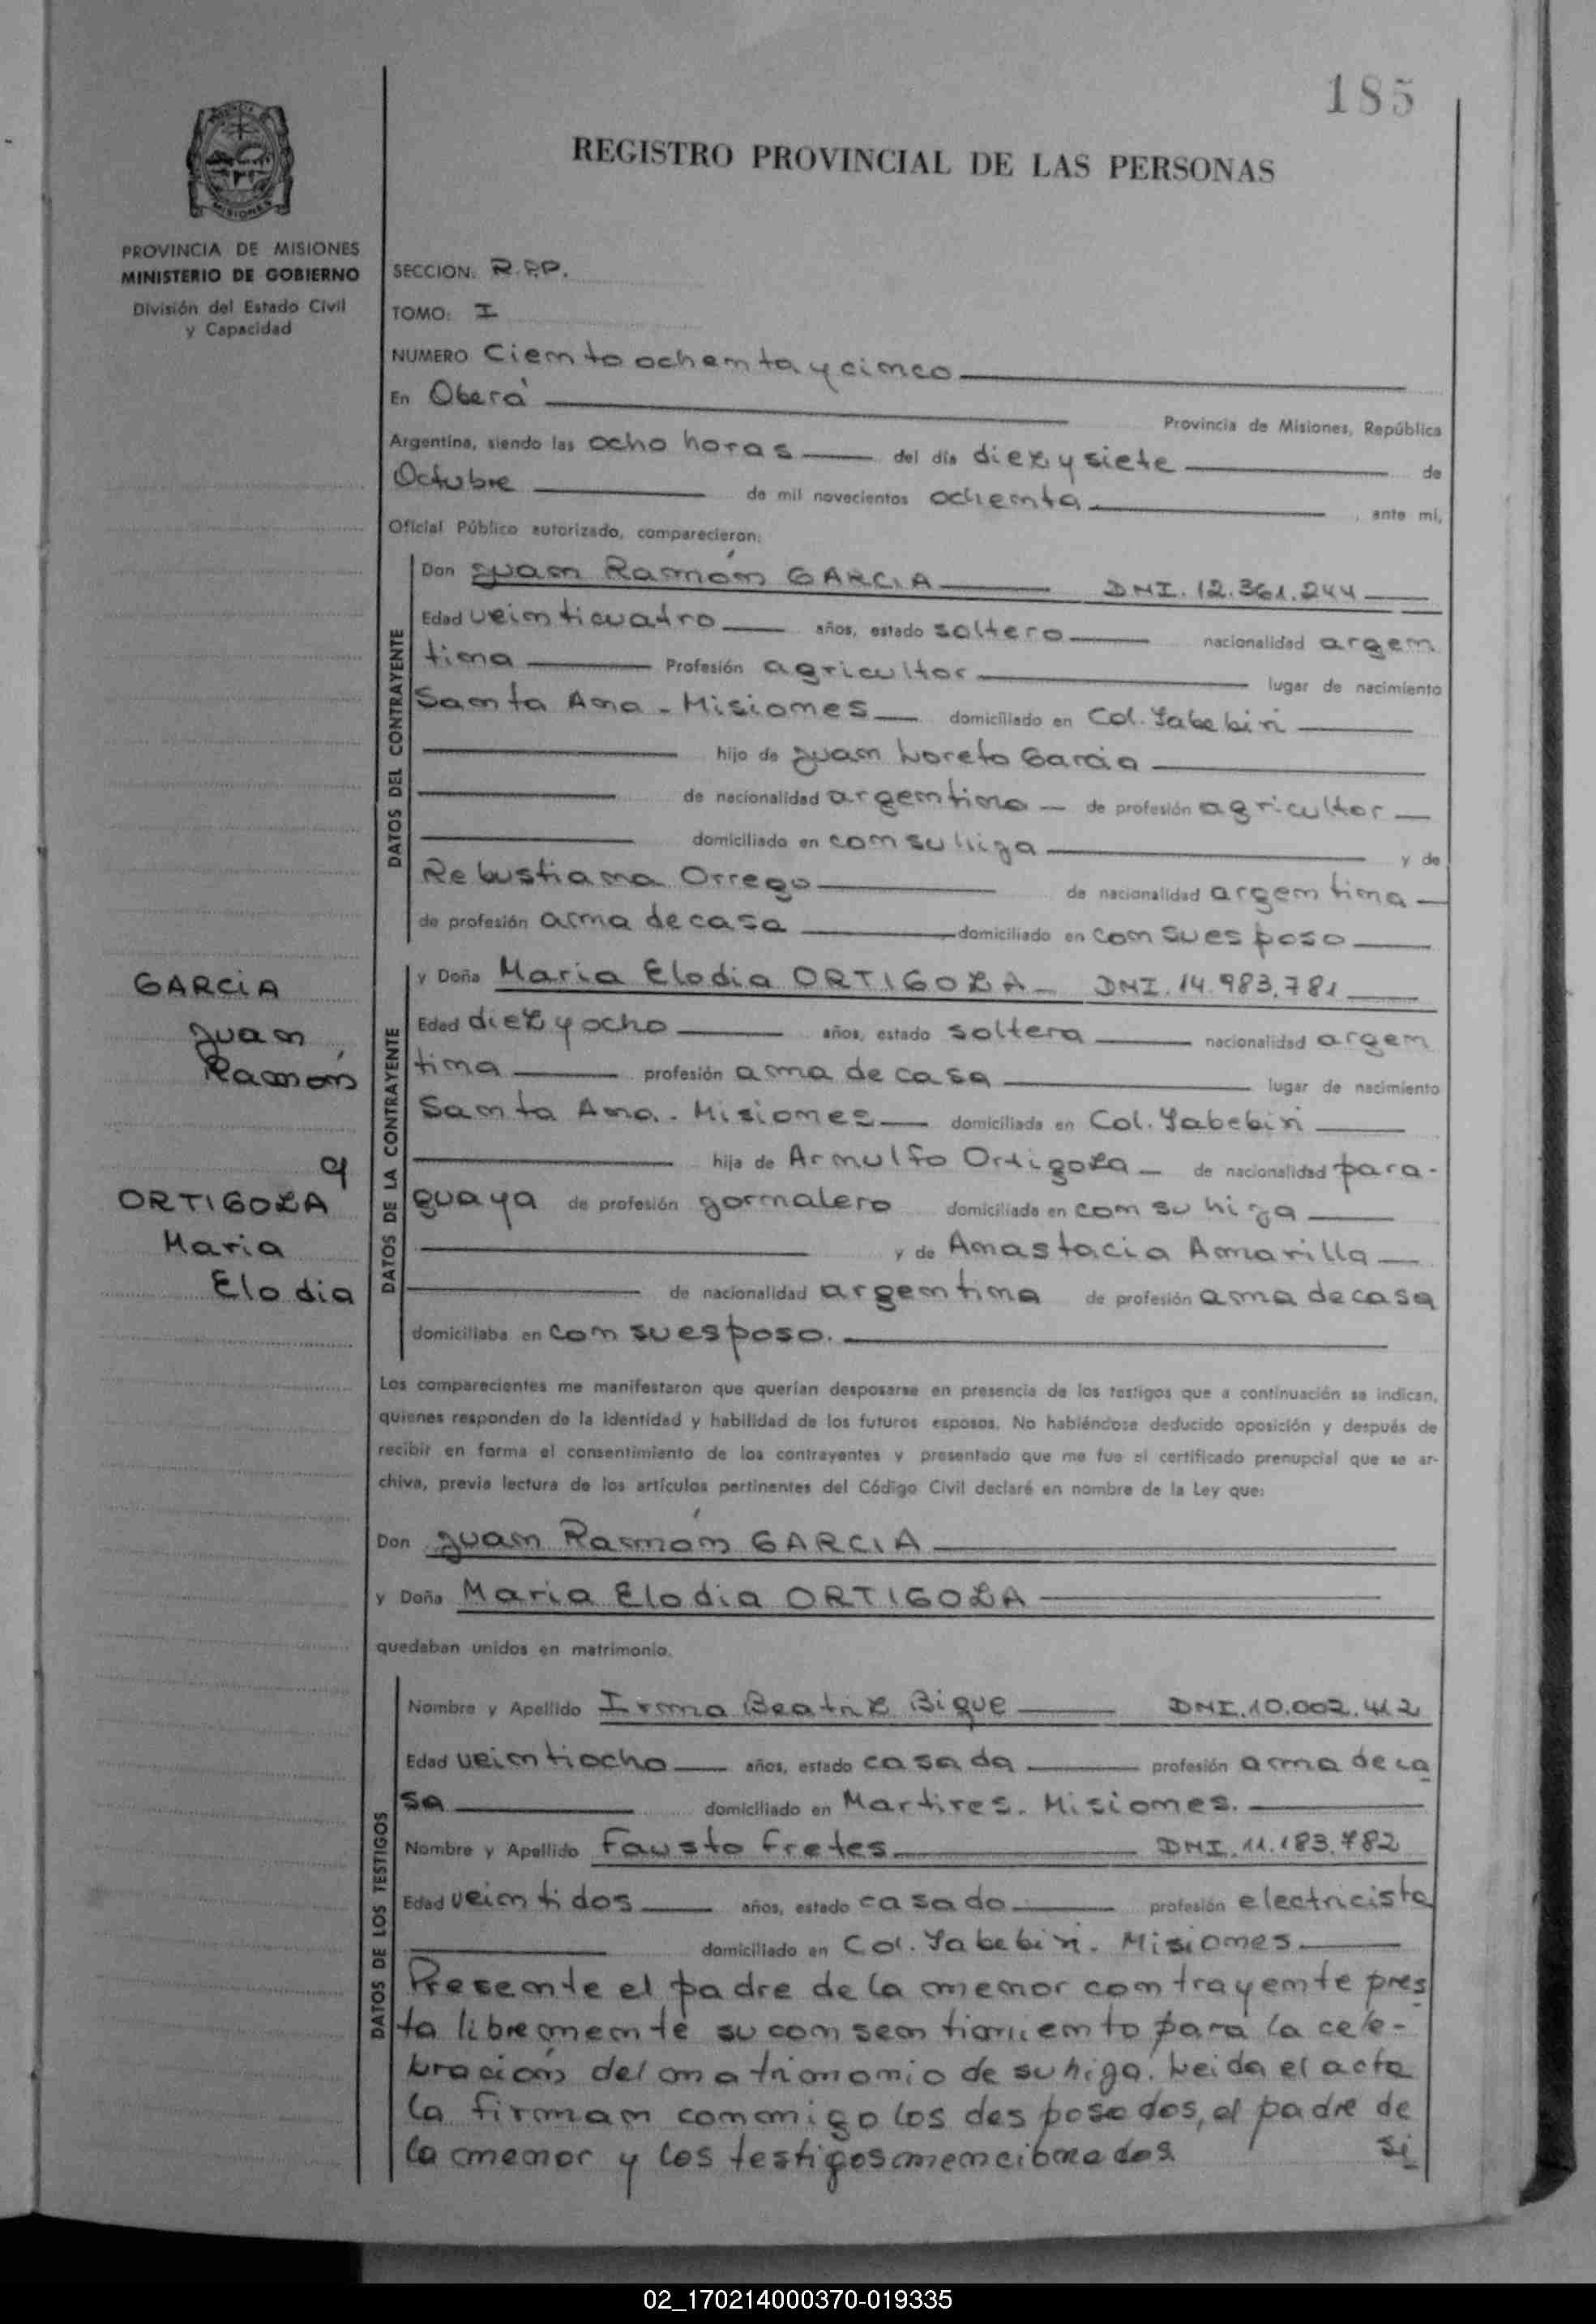 185
REGISTRO PROVINCIAL DE LAS PERSONAS
MISIONES
PROVINCIA DE MISIONES
MINISTERIO DE GOBIERNO
División del Estado Civil
y Capacidad
SECCION: R.P.P.
TOMO: I
NUMERO Ciento ochenta y cinco
En Oberá
Provincia de Misiones, República
Argentina, siendo las ocho horas del día diez y siete de
Octubre de mil novecientos ochenta, ante mí,
Oficial Público autorizado, comparecieron:
DATOS DEL CONTRAYENTE
Don Juan Ramón GARCIA DNI. 12.361.244
Edad veinticuatro años, estado soltero nacionalidad argen
tina Profesión agricultor lugar de nacimiento
Santa Ana - Misiones domiciliado en Col. Yabebiri
hijo de Juan Loreto Garcia
de nacionalidad argentina de profesión agricultor
domiciliado en con su hija y de
Robustiana Orrego de nacionalidad argentina
de profesión ama de casa domiciliado en con su esposo
GARCIA
Juan
Ramón
y
ORTIGOZA
Maria
Elodia
DATOS DE LA CONTRAYENTE
y Doña Maria Elodia ORTIGOZA DNI. 14.983.781
Edad diez y ocho años, estado soltera nacionalidad argen
tina profesión ama de casa lugar de nacimiento
Santa Ana. - Misiones domiciliada en Col. Yabebiri
hija de Arnulfo Ortigoza de nacionalidad para-
guaya de profesión jornalero domiciliada en con su hija
y de Anastacia Amarilla
de nacionalidad argentina de profesión ama de casa
domiciliaba en con su esposo.
Los comparecientes me manifestaron que querían desposarse en presencia de los testigos que a continuación se indican,
quienes responden de la identidad y habilidad de los futuros esposos. No habiéndose deducido oposición y después de
recibir en forma el consentimiento de los contrayentes y presentado que me fue el certificado prenupcial que se ar-
chiva, previa lectura de los artículos pertinentes del Código Civil declaré en nombre de la Ley que:
Don Juan Ramón GARCIA
y Doña Maria Elodia ORTIGOZA
quedaban unidos en matrimonio.
DATOS DE LOS TESTIGOS
Nombre y Apellido Irma Beatriz Bique DNI. 10.002.412
Edad veintiocho años, estado casada profesión ama de ca
sa domiciliado en Martires. Misiones.
Nombre y Apellido Fausto Fretes DNI. 11.183.782
Edad veintidos años, estado casado profesión electricista
domiciliado en Col. Yabebiri. Misiones.
Presente el padre de la menor contrayente pres
ta libremente su consentimiento para la cele-
bración del matrimonio de su hija. Leida el acta
la firman conmigo los desposados, el padre de
la menor y los testigos mencionados si
02_170214000370-019335